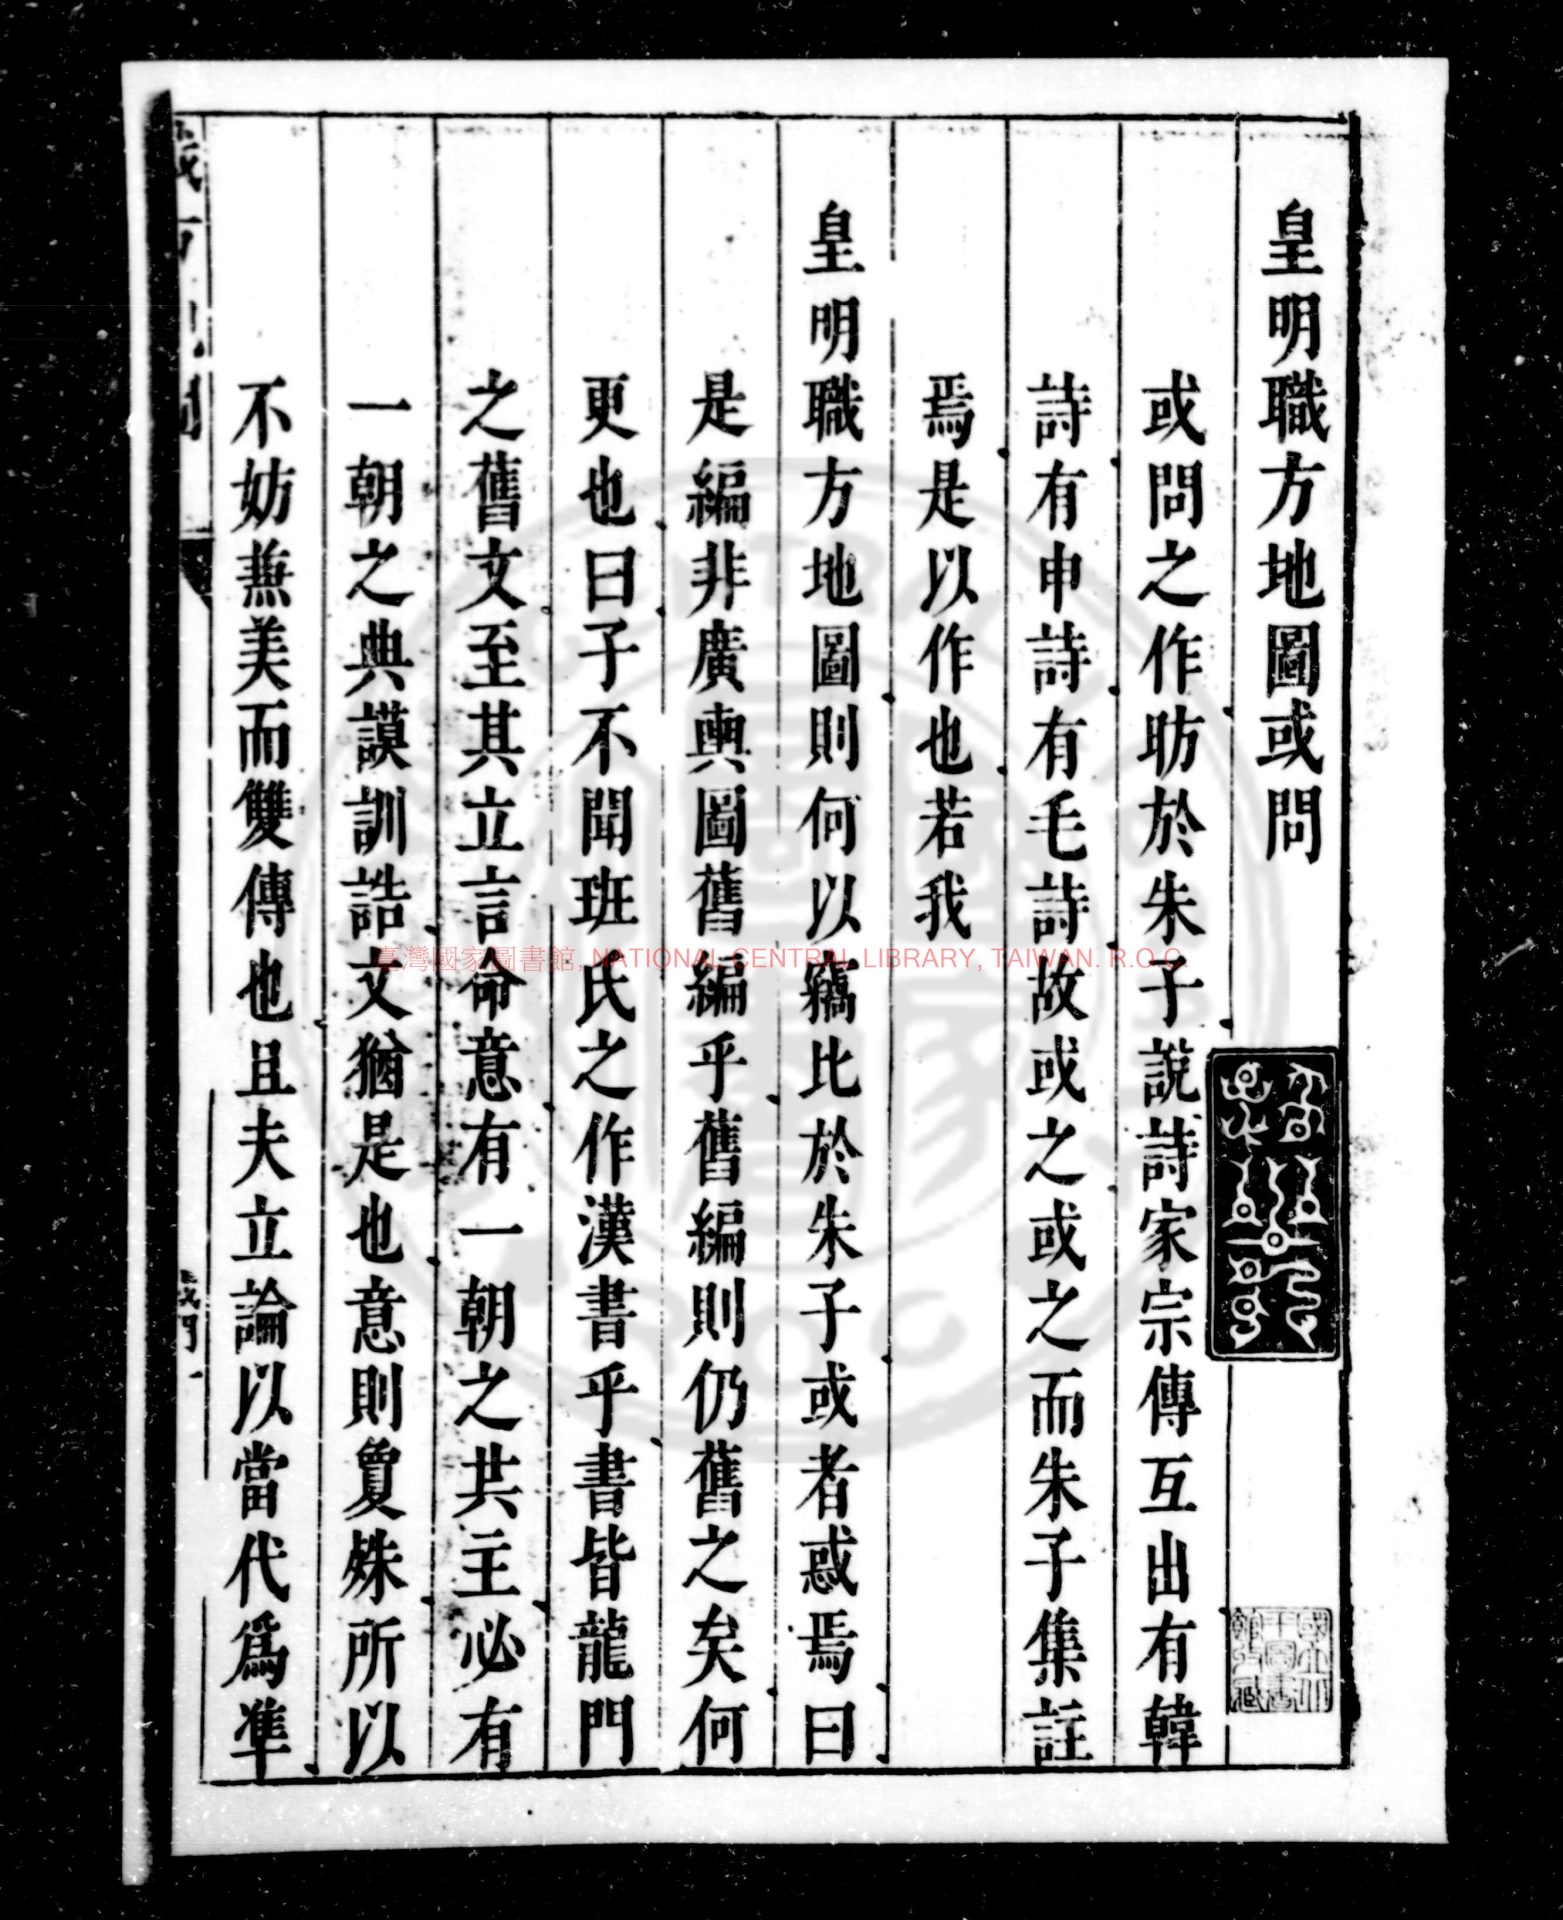 皇明職方地圖或問
或問之作昉於朱子說詩家宗傳互出有韓
詩有申詩有毛詩故或之或之而朱子集註
焉是以作也若我
皇明職方地圖則何以竊比於朱子或者惑焉曰
是編非廣輿圖舊編乎舊編則仍舊之矣何
更也曰子不聞班氏之作漢書乎書皆龍門
之舊文至其立言命意有一朝之共主必有
一朝之典謨訓誥文猶是也意則敻殊所以
不妨兼美而雙傳也且夫立論以當代爲準
臺灣國家圖書館, NATIONAL CENTRAL LIBRARY, TAIWAN. R.O.C.